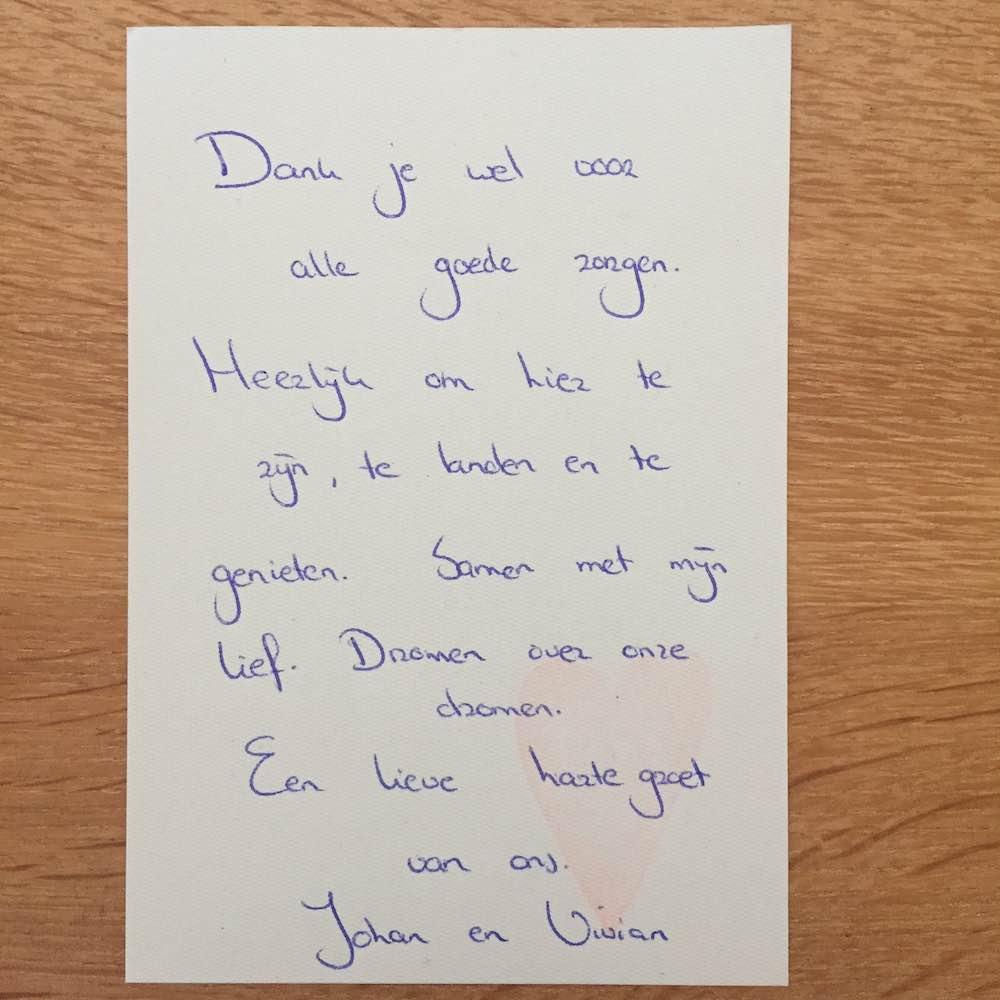 Dank je wel voor
alle goede zorgen.
Heerlijk om hier te
zijn, te landen en te
genieten. Samen met mijn
lief. Dromen over onze
dromen.
Een lieve harte groet
van ons.
Johan en Vivian